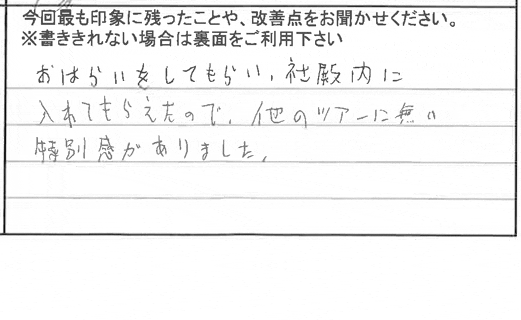 今回最も印象に残ったことや、改善点をお聞かせください。
※書ききれない場合は裏面をご利用下さい
おはらいをしてもらい、社殿内に
入れてもらえたので、他のツアーに無い
特別感がありました。